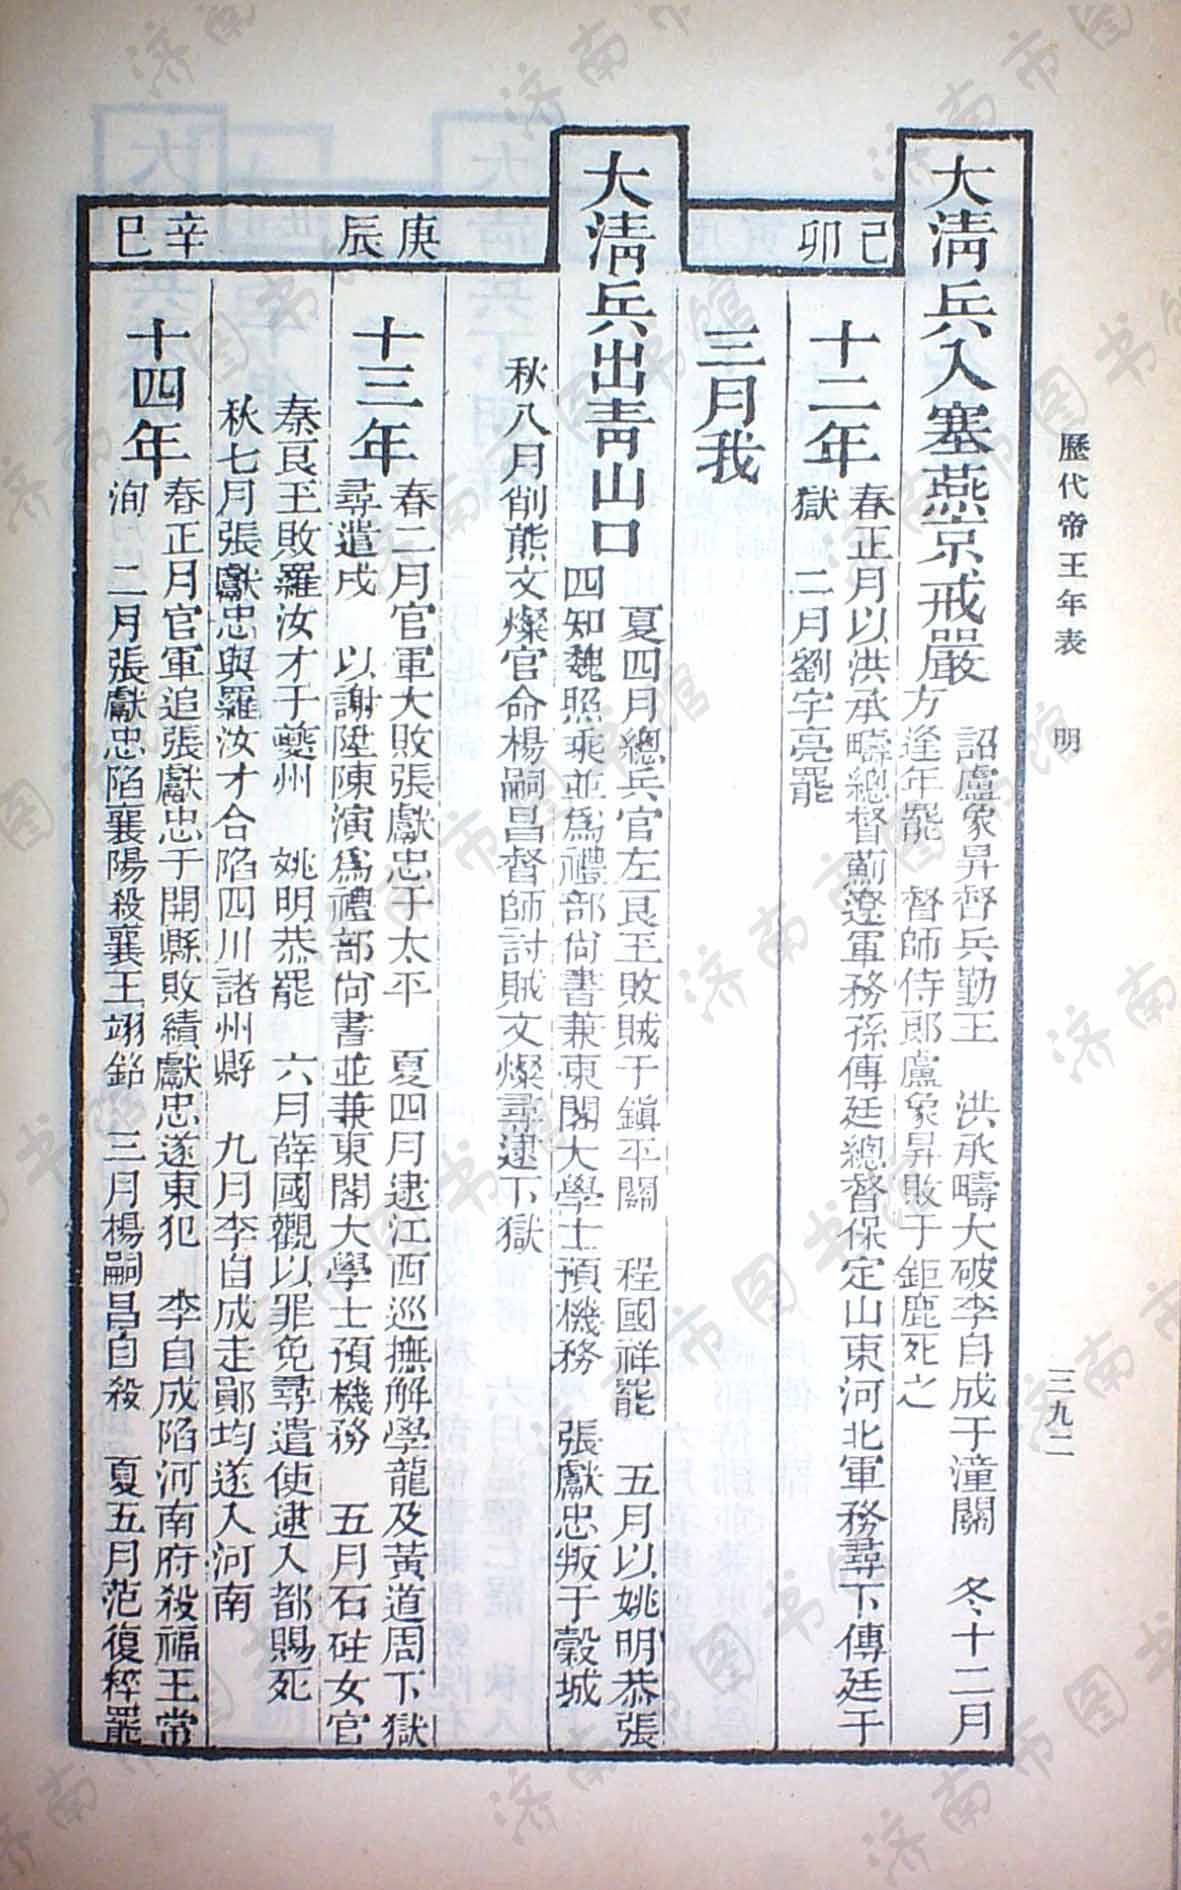 歷代帝王年表 明 三九二
大淸兵入塞燕京戒嚴
詔盧象昇督兵勤王 洪承疇大破李自成于潼關 冬十二月
方逢年罷 督師侍郎盧象昇敗于鉅鹿死之
己卯
十二年
春正月以洪承疇總督薊遼軍務孫傳廷總督保定山東河北軍務尋下傳廷于
獄 二月劉宇亮罷
三月我
大淸兵出靑山口
夏四月總兵官左良玉敗賊于鎭平關 程國祥罷 五月以姚明恭張
四知魏照乘並爲禮部尙書兼東閣大學士預機務 張獻忠叛于穀城
秋八月削熊文燦官命楊嗣昌督師討賊文燦尋逮下獄
庚辰
十三年
春二月官軍大敗張獻忠于太平 夏四月逮江西巡撫解學龍及黃道周下獄
尋遣戍 以謝陞陳演爲禮部尙書並兼東閣大學士預機務 五月石砫女官
秦良玉敗羅汝才于夔州 姚明恭罷 六月薛國觀以罪免尋遣使逮入都賜死
秋七月張獻忠與羅汝才合陷四川諸州縣 九月李自成走鄖均遂入河南
辛巳
十四年
春正月官軍追張獻忠于開縣敗績獻忠遂東犯 李自成陷河南府殺福王常
洵 二月張獻忠陷襄陽殺襄王翊銘 三月楊嗣昌自殺 夏五月范復粹罷
济南市图书馆